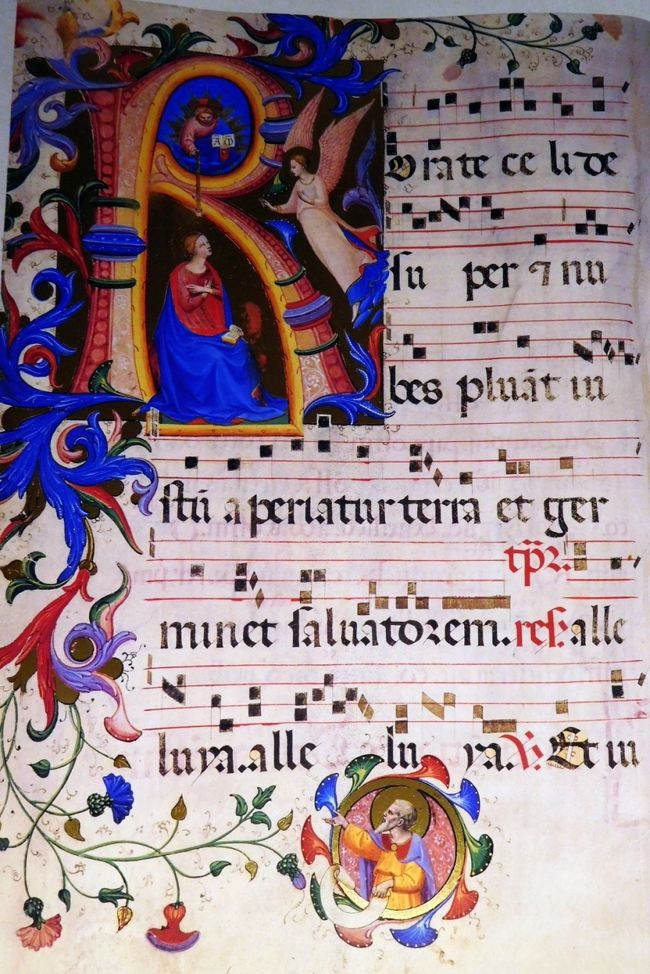 R Orate ce li de
su per ⁊ nu
bes pluāt iu
stū aperiatur terra et ger
tp̄r.
minet saluatorem. res. alle
luya. alle lu ya. ℣. Et iu